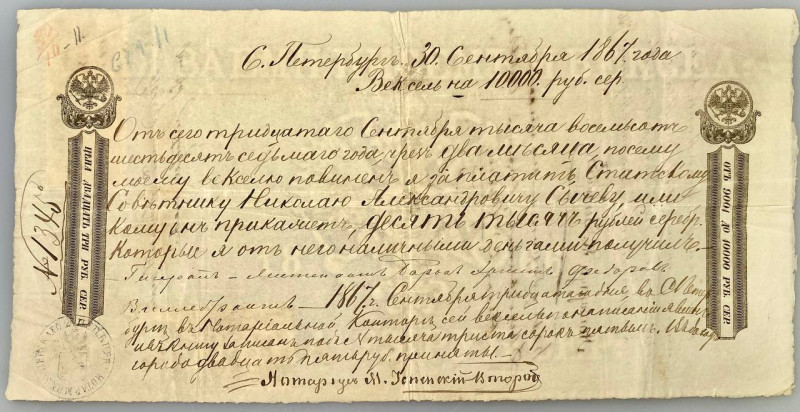 С. Петербургъ. 30. Сентября 1867. года
Вексель на 10000. руб. сер.
Отъ сего тридцатаго Сентября тысяча восемьсотъ
шестьдесятъ седьмаго года, чрезъ два мѣсяца, по сему
моему векселю повиненъ я заплатить Статскому
Совѣтнику Николаю Александровичу Сычеву, или
кому онъ прикажетъ, десять тысячъ рублей серебр.
которые я отъ него наличными деньгами получилъ.
Баронъ Федоровъ
1867 г. Сентября тридцатаго дня, въ С. Петер
бургѣ въ Нотаріальной Конторѣ, сей вексель
въ книгу записанъ подъ № тысяча триста сорокъ пятымъ.
двадцать пять руб. приняты.
Нотаріусъ М. Успенскій Второй
№ 1345
ЦѢНА ДВАДЦАТЬ ТРИ РУБ. СЕР.
ОТЪ 9001 ДО 10000 РУБ. СЕР.